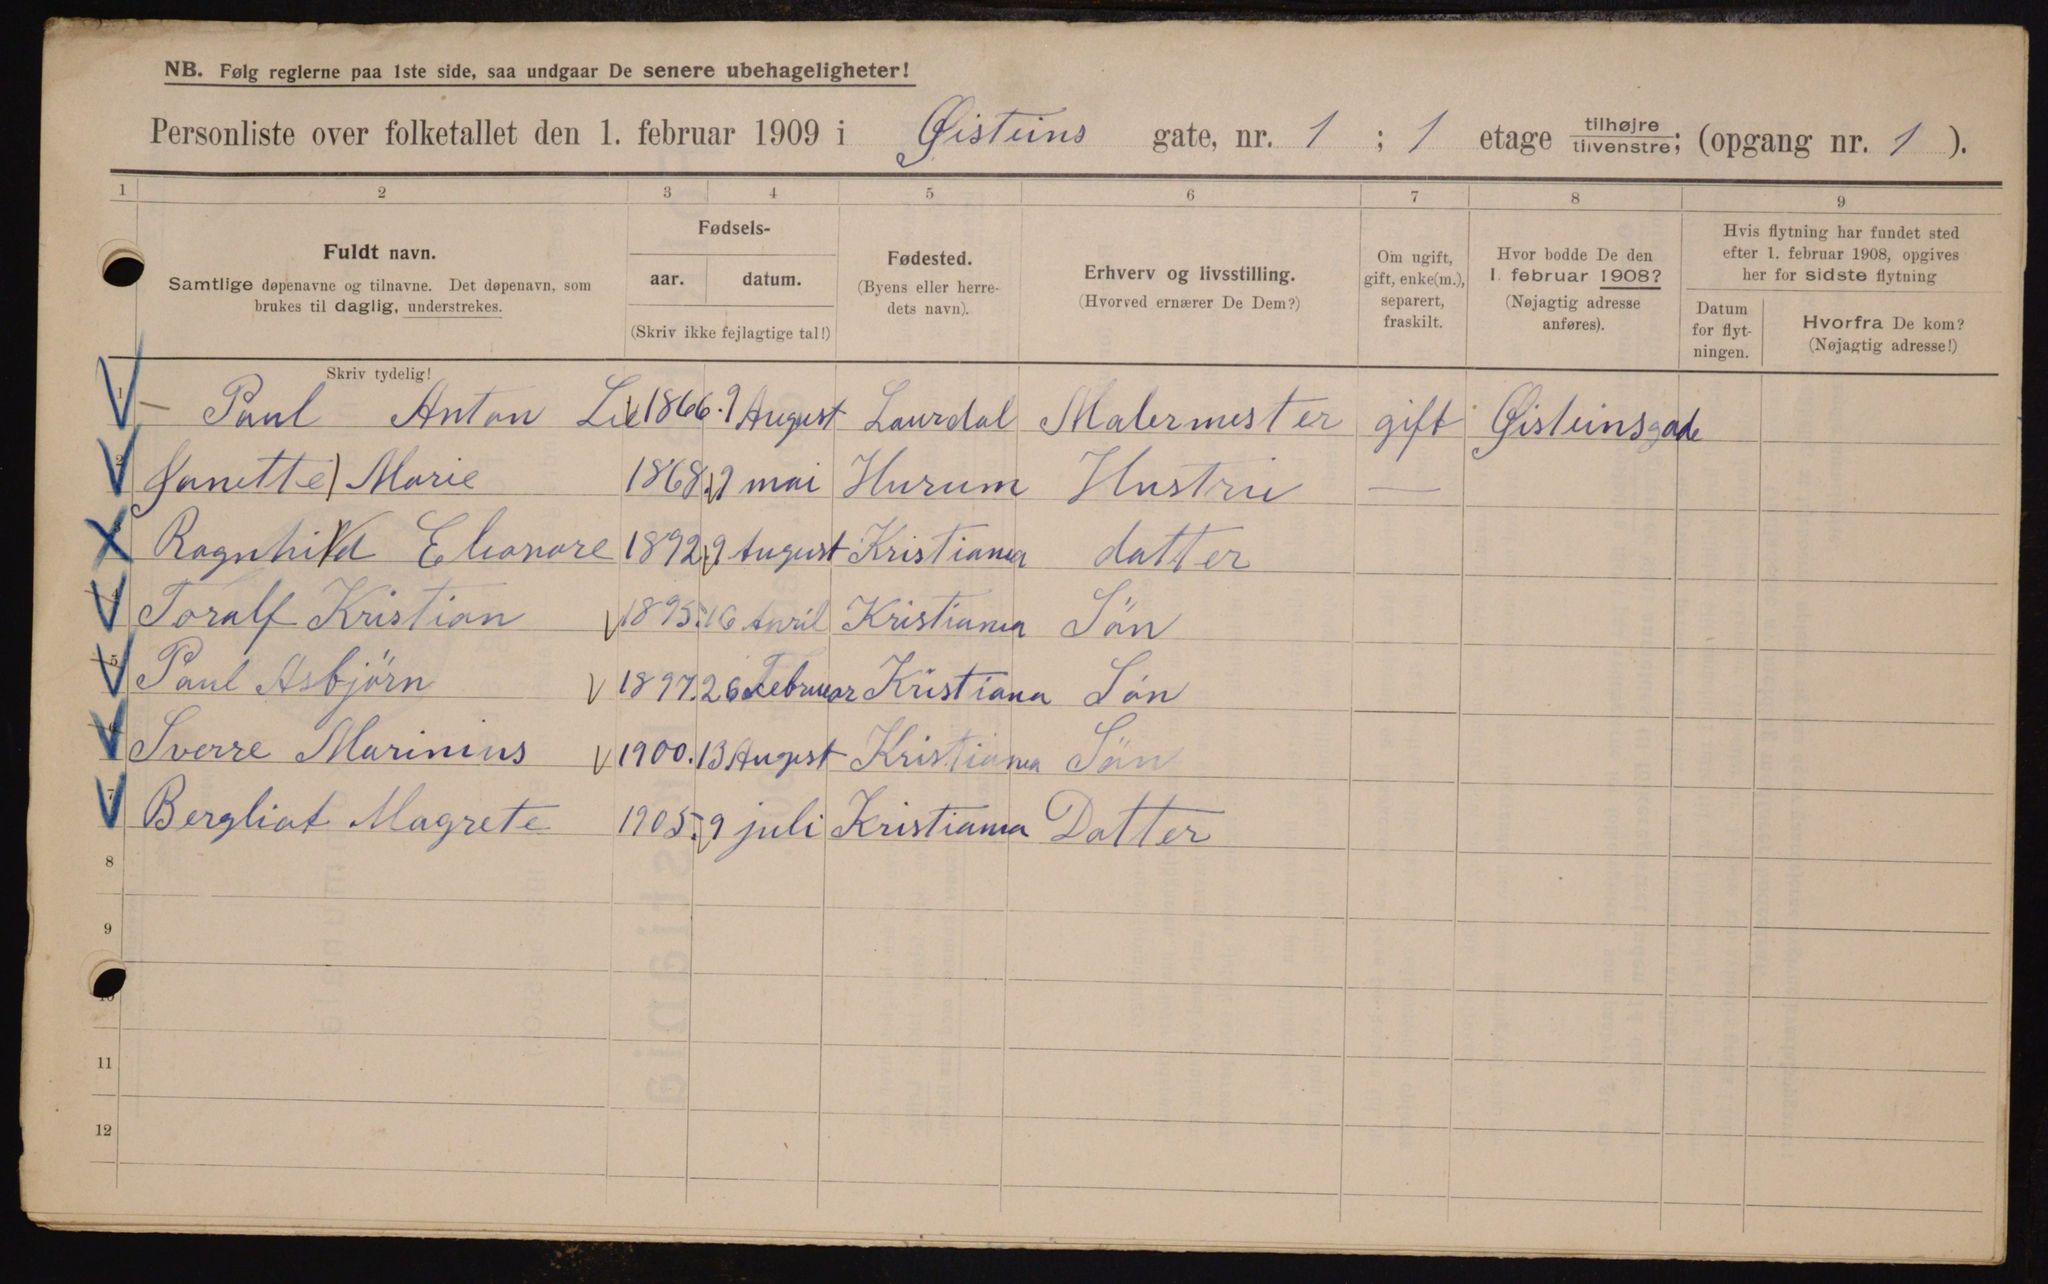 NB. Følg reglerne paa 1ste side, saa undgaar De senere ubehageligheter!
Personliste over folketallet den 1. februar 1909 i Øisteins gate, nr. 1 ; 1 etage tilhøjre tilvenstre; (opgang nr. 1 ).
1 2 3 4 5 6 7 8 9
Fuldt navn.
Samtlige døpenavne og tilnavne. Det døpenavn, som
brukes til daglig, understrekes.
Skriv tydelig!
Fødsels-
aar. datum.
(Skriv ikke fejlagtige tal!)
Fødested.
(Byens eller herre-
dets navn).
Erhverv og livsstilling.
(Hvorved ernærer De Dem?)
Om ugift,
gift, enke(m.),
separert,
fraskilt.
Hvor bodde De den
1. februar 1908?
(Nøjagtig adresse
anføres).
Hvis flytning har fundet sted
efter 1. februar 1908, opgives
her for sidste flytning
Datum
for flyt-
ningen.
Hvorfra De kom?
(Nøjagtig adresse!)
1 Paul Anton Lie 1866. 9 August Laurdal Malermester gift Øisteinsgade
2 Janette Marie 1868. 9 mai Hurum Hustru —
3 Ragnhild Eleonore 1892 9 August Kristiania datter
4 Toralf Kristian 1895. 16 April Kristiania Sön
5 Paul Asbjörn 1897. 26 Februar Kristiana Sön
6 Sverre Marinius 1900. 13 August Kristiania Sön
7 Bergliot Magrete 1905. 9 juli Kristiania Datter
8
9
10
11
12